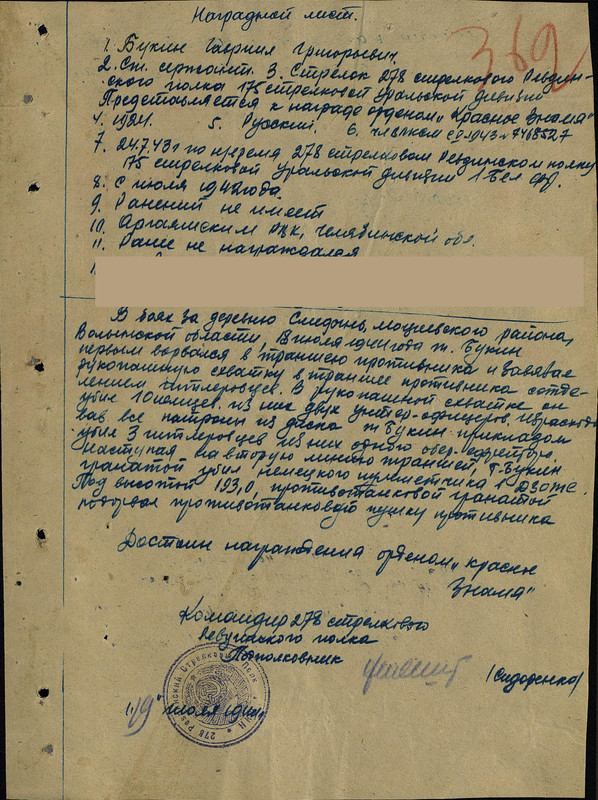 Наградной лист.
369
1. Букин Гавриил Григорьевич.
2. Ст. сержант. 3. Стрелок 278 стрелкового Ревдин-
ского полка 175 стрелковой Уральской дивизии
Представляется к награде орденом „Красное Знамя"
4. 1924. 5. Русский. 6. чл. ВЛКСМ с 1943 №
7. 24.7.43 г по время 278 стрелковом Ревдинском полку
175 стрелковой Уральской дивизии 1 Бел. фр.
8. С июля 1942 года.
9. Ранений не имеет
10. Аргаяшским РВК, Челябинской обл.
11. Ранее не награждался
В боях за деревню Смидынь, мациевского района,
Волынской области, 8 июля 1944 года т. Букин
первым ворвался в траншею противника и завязал
рукопашную схватку в траншее противника с отде-
лением гитлеровцев. В рукопашной схватке он
убил 10 немцев. из них двух унтер-офицеров. Израсходо-
вав все патроны из диска т. Букин прикладом
убил 3 гитлеровцев из них одного обер-ефрейтора.
Наступая на вторую линию траншей, т. Букин
гранатой убил немецкого пулеметчика в дзоте.
Под высотой 193,0, противотанковой гранатой
подорвал противотанковую пушку противника
Достоин награждения орденом „Красное
Знамя"
Командир 278 стрелкового
Ревдинского полка
Подполковник
(Сидоренко)
„19" июля 1944 г.